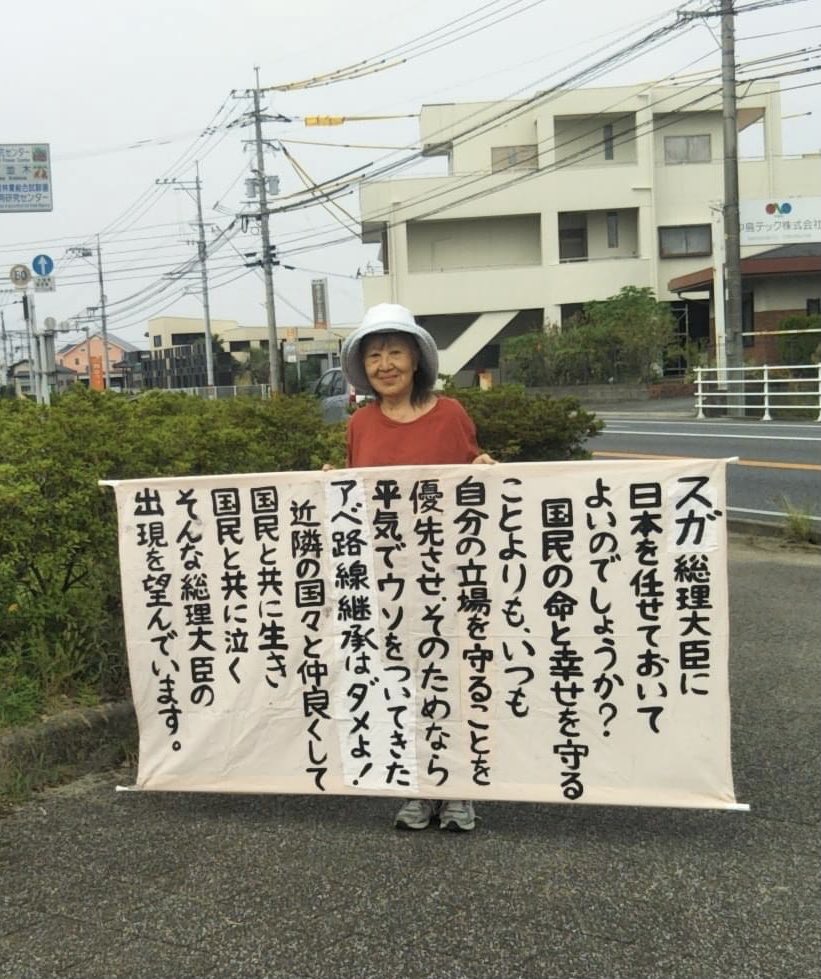 スガ総理大臣に
日本を任せておいて
よいのでしょうか?
国民の命と幸せを守る
ことよりも、いつも
自分の立場を守ることを
優先させ、そのためなら
平気でウソをついてきた
アベ路線継承はダメよ!
近隣の国々と仲良くして
国民と共に生き
国民と共に泣く
そんな総理大臣の
出現を望んでいます。
島テック株式会社
センター
並木
研究センター